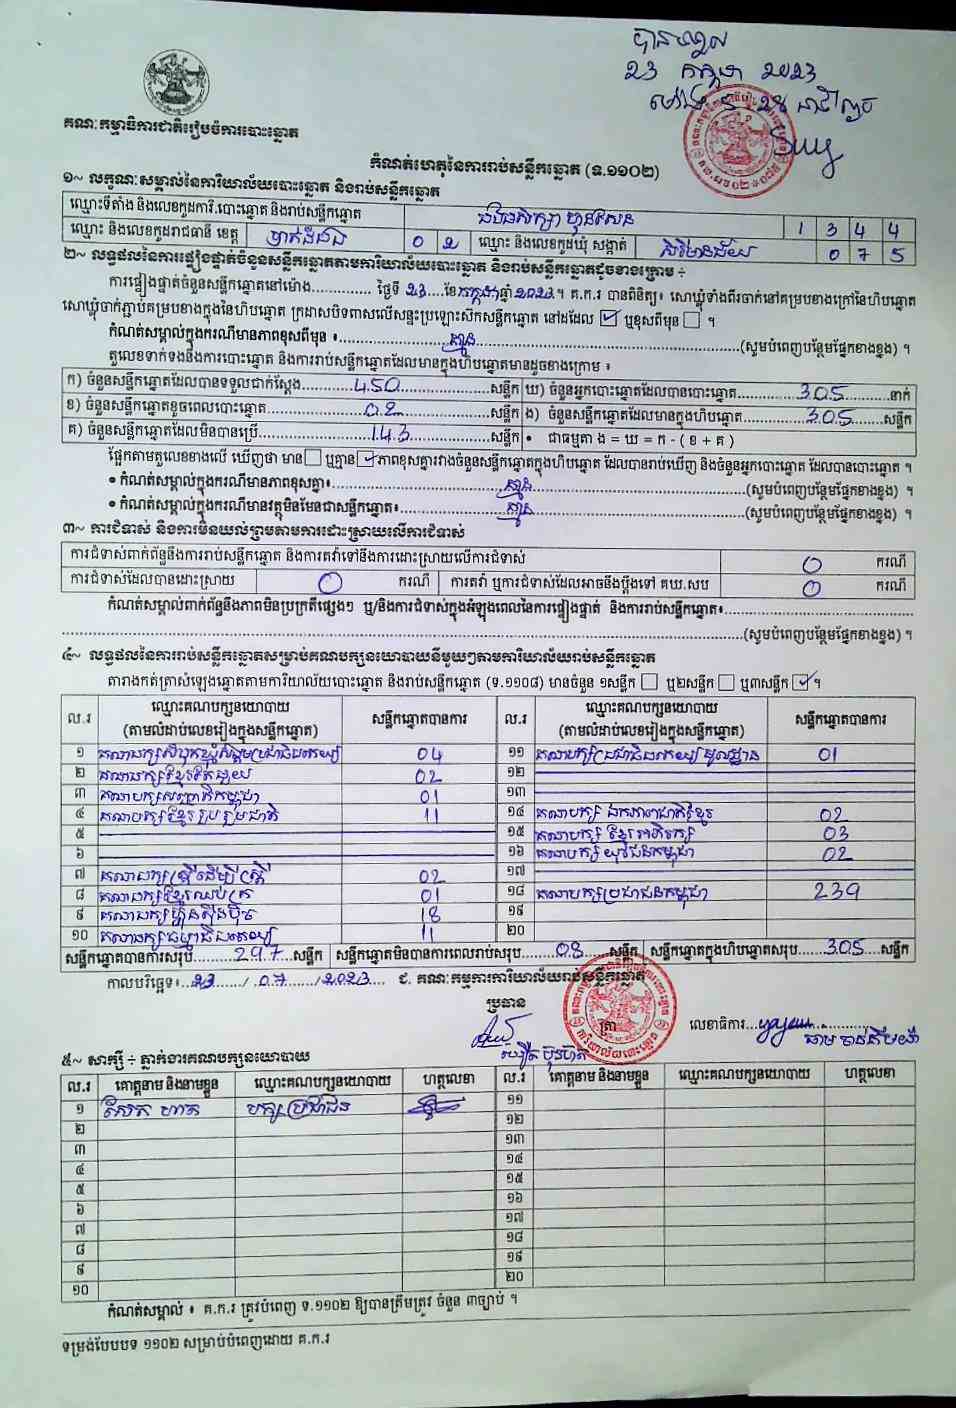 បានទទួល
23 កក្កដា 2023
គណៈកម្មាធិការជាតិរៀបចំការបោះឆ្នោត
កំណត់ហេតុនៃការរាប់សន្លឹកឆ្នោត (ទ.១១០២)
១~ លក្ខណៈសម្គាល់នៃការិយាល័យបោះឆ្នោត និងរាប់សន្លឹកឆ្នោត
ឈ្មោះទីតាំង និងលេខកូដការិ.បោះឆ្នោត និងរាប់សន្លឹកឆ្នោត ហ៊ុនសែន 1 3 4 4
ឈ្មោះ និងលេខកូដរាជធានី ខេត្ត បាត់ដំបង 0 2 ឈ្មោះ និងលេខកូដឃុំ សង្កាត់ 0 7 5
២~ លទ្ធផលនៃការផ្ទៀងផ្ទាត់ចំនួនសន្លឹកឆ្នោតតាមការិយាល័យបោះឆ្នោត និងរាប់សន្លឹកឆ្នោតដូចខាងក្រោម ÷
ការផ្ទៀងផ្ទាត់ចំនួនសន្លឹកឆ្នោតនៅម៉ោង............. ថ្ងៃទី 23....ខែ កក្កដា ឆ្នាំ 2023.។ គ.ក.រ បានពិនិត្យ៖ សោឃ្លុំទាំងពីរចាក់នៅគម្របខាងក្រៅនៃហិបឆ្នោត
សោឃ្លុំចាក់ភ្ជាប់គម្របខាងក្នុងនៃហិបឆ្នោត ក្រដាសបិទពាសលើសន្ទះប្រឡោះសឹកសន្លឹកឆ្នោត នៅដដែល ☑ ឬខុសពីមុន ☐ ។
កំណត់សម្គាល់ក្នុងករណីមានភាពខុសពីមុន ៖ គ្មាន (សូមបំពេញបន្ថែមផ្នែកខាងខ្នង) ។
តួលេខទាក់ទងនឹងការបោះឆ្នោត និងការរាប់សន្លឹកឆ្នោតដែលមានក្នុងហិបឆ្នោតមានដូចខាងក្រោម ៖
ក) ចំនួនសន្លឹកឆ្នោតដែលបានទទួលជាក់ស្តែង 450 សន្លឹក ឃ) ចំនួនអ្នកបោះឆ្នោតដែលបានបោះឆ្នោត 305 នាក់
ខ) ចំនួនសន្លឹកឆ្នោតខូចពេលបោះឆ្នោត 02 សន្លឹក ង) ចំនួនសន្លឹកឆ្នោតដែលមានក្នុងហិបឆ្នោត 305 សន្លឹក
គ) ចំនួនសន្លឹកឆ្នោតដែលមិនបានប្រើ 143 សន្លឹក • ជាធម្មតា ង = ឃ = ក - ( ខ + គ )
ផ្អែកតាមតួលេខខាងលើ ឃើញថា មាន ☐ ឬគ្មាន ☑ ភាពខុសគ្នារវាងចំនួនសន្លឹកឆ្នោតក្នុងហិបឆ្នោត ដែលបានរាប់ឃើញ និងចំនួនអ្នកបោះឆ្នោត ដែលបានបោះឆ្នោត ។
• កំណត់សម្គាល់ក្នុងករណីមានភាពខុសគ្នា៖ គ្មាន (សូមបំពេញបន្ថែមផ្នែកខាងខ្នង) ។
• កំណត់សម្គាល់ក្នុងករណីមានវត្ថុមិនមែនជាសន្លឹកឆ្នោត៖ គ្មាន (សូមបំពេញបន្ថែមផ្នែកខាងខ្នង) ។
៣~ ការជំទាស់ និងការមិនយល់ព្រមតាមការដោះស្រាយលើការជំទាស់
ការជំទាស់ពាក់ព័ន្ធនឹងការរាប់សន្លឹកឆ្នោត និងការតវ៉ាទៅនឹងការដោះស្រាយលើការជំទាស់ 0 ករណី
ការជំទាស់ដែលបានដោះស្រាយ 0 ករណី ការតវ៉ា ឬការជំទាស់ដែលអាចនឹងប្តឹងទៅ គឃ.សប 0 ករណី
កំណត់សម្គាល់ពាក់ព័ន្ធនឹងភាពមិនប្រក្រតីផ្សេងៗ ឬ/និងការជំទាស់ក្នុងអំឡុងពេលនៃការផ្ទៀងផ្ទាត់ និងការរាប់សន្លឹកឆ្នោត៖
(សូមបំពេញបន្ថែមផ្នែកខាងខ្នង) ។
៤~ លទ្ធផលនៃការរាប់សន្លឹកឆ្នោតសម្រាប់គណបក្សនយោបាយនីមួយៗតាមការិយាល័យរាប់សន្លឹកឆ្នោត
តារាងកត់ត្រាសំឡេងឆ្នោតតាមការិយាល័យបោះឆ្នោត និងរាប់សន្លឹកឆ្នោត (ទ.១១០៨) មានចំនួន ១សន្លឹក ☐ ឬ២សន្លឹក ☐ ឬ៣សន្លឹក ☑ ។
ល.រ ឈ្មោះគណបក្សនយោបាយ (តាមលំដាប់លេខរៀងក្នុងសន្លឹកឆ្នោត) សន្លឹកឆ្នោតបានការ ល.រ ឈ្មោះគណបក្សនយោបាយ (តាមលំដាប់លេខរៀងក្នុងសន្លឹកឆ្នោត) សន្លឹកឆ្នោតបានការ
១ គណបក្សសំបុកឃ្មុំសង្គមប្រជាធិបតេយ្យ 04 ១១ គណបក្សប្រជាធិបតេយ្យមូលដ្ឋាន 01
២ គណបក្សខ្មែរតែមួយ 02 ១២
៣ គណបក្សសញ្ជាតិកម្ពុជា 01 ១៣
៤ គណបក្សខ្មែររួបរួមជាតិ 11 ១៤ គណបក្ស ឯកភាពជាតិខ្មែរ 02
៥ ១៥ គណបក្ស ខ្មែរអភិរក្ស 03
៦ ១៦ គណបក្ស យុវជនកម្ពុជា 02
៧ គណបក្សស្ត្រីដើម្បីស្ត្រី 02 ១៧
៨ គណបក្សខ្មែរឈប់ក្រ 01 ១៨ គណបក្សប្រជាជនកម្ពុជា 239
៩ គណបក្សហ៊្វុនស៊ិនប៉ិច 18 ១៩
១០ គណបក្សធម្មាធិបតេយ្យ 11 ២០
សន្លឹកឆ្នោតបានការសរុប 297 សន្លឹក សន្លឹកឆ្នោតមិនបានការពេលរាប់សរុប 08 សន្លឹក សន្លឹកឆ្នោតក្នុងហិបឆ្នោតសរុប 305 សន្លឹក
កាលបរិច្ឆេទ៖ 23 / 07 / 2023 ជ. គណៈកម្មការការិយាល័យរាប់សន្លឹកឆ្នោត
ប្រធាន
ត្រា លេខាធិការ
៥~ សាក្សី ÷ ភ្នាក់ងារគណបក្សនយោបាយ
ល.រ គោត្តនាម និងនាមខ្លួន ឈ្មោះគណបក្សនយោបាយ ហត្ថលេខា ល.រ គោត្តនាម និងនាមខ្លួន ឈ្មោះគណបក្សនយោបាយ ហត្ថលេខា
១ បក្ស ប្រជាជន ១១
២ ១២
៣ ១៣
៤ ១៤
៥ ១៥
៦ ១៦
៧ ១៧
៨ ១៨
៩ ១៩
១០ ២០
កំណត់សម្គាល់ ៖ គ.ក.រ ត្រូវបំពេញ ទ.១១០២ ឱ្យបានត្រឹមត្រូវ ចំនួន ៣ច្បាប់ ។
ទម្រង់បែបបទ ១១០២ សម្រាប់បំពេញដោយ គ.ក.រ